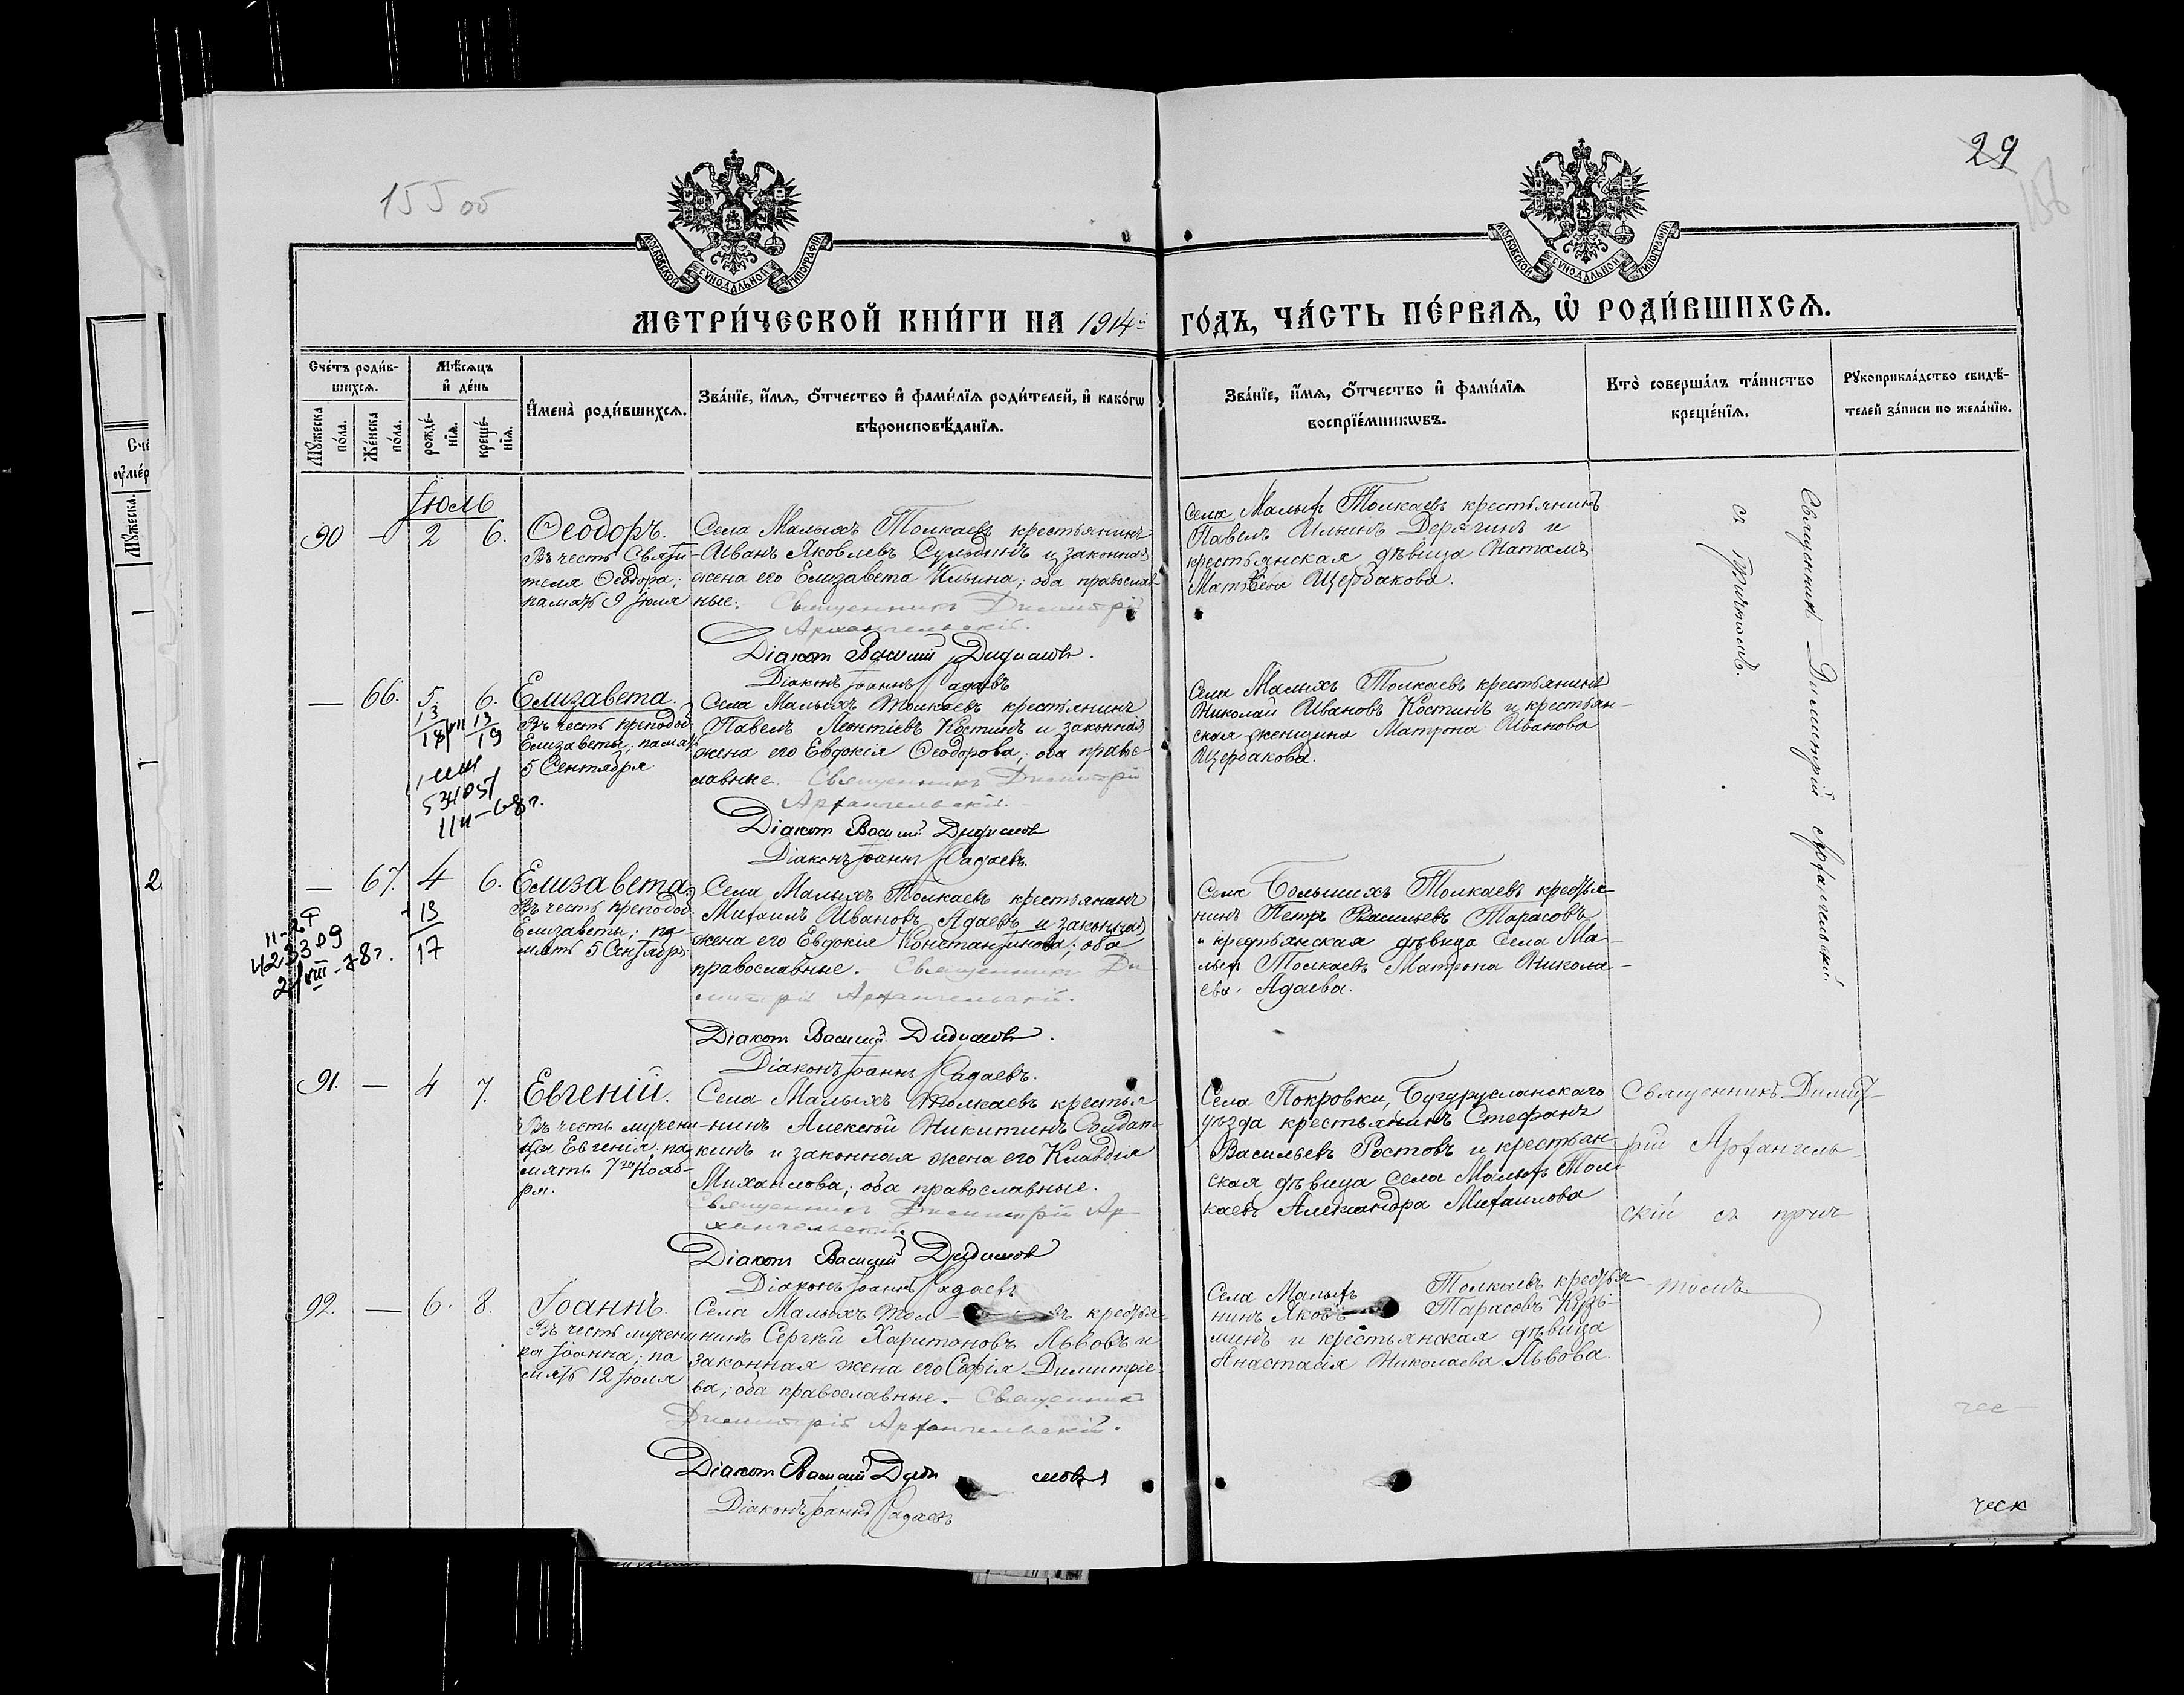 155 об
29
156
МОСКОВСКОЙ СУНОДАЛЬНОЙ ТИПОГРАФІИ
МОСКОВСКОЙ СУНОДАЛЬНОЙ ТИПОГРАФІИ
МЕТРИ́ЧЕСКОЙ КНИ́ГИ НА 1914й ГО́ДЪ, ЧА́СТЬ ПЕ́РВАѦ, Ѡ҆ РОДИ́ВШИХСѦ.
Сче́тъ роди́в-
шихсѧ.
Мѣ́сѧцъ
и҆ де́нь
Мꙋ́жеска
по́ла.
Же́нска
по́ла.
рожде́-
нїѧ.
креще́-
нїѧ.
И҆мена̀ роди́вшихсѧ.
Зва́нїе, и҆́мѧ, ѻ҆́тчество и҆ фами́лїѧ роди́телей, и҆ како́гѡ
вѣроисповѣ́данїѧ.
Зва́нїе, и҆́мѧ, ѻ҆́тчество и҆ фами́лїѧ
воспрїе́мникѡвъ.
Кто̀ соверша́лъ та́инство
креще́нїѧ.
Рꙋкоприкла́дство свидѣ́-
телей за́писи по жела́нїю.
Іюль
90 — 2 6.
Ѳеодоръ.
Въ честь Святи-
теля Ѳеодора;
память 9 Іюля
Села Малыхъ Толкаевъ крестьянинъ
Иванъ Яковлевъ Сульдинъ и законная
жена его Елизавета Ильина; оба православ
ные. Священникъ Димитрій
Архангельскій.
Діакон Василій Дидимов.
Діаконъ Іоаннъ Садаевъ
Села Малыхъ Толкаевъ крестьянинъ
Павелъ Ильинъ Дерягинъ и
крестьянская дѣвица Наталія
Матвѣева Щербакова.
Священникъ Димитрій Архангельскій
съ причтомъ.
— 66. 5. 6.
13 13
18/VII 19
534051
11 - 68 г.
Елизавета.
Въ честь преподоб.
Елизаветы; память
5 Сентября.
Села Малыхъ Толкаевъ крестьянинъ
Павелъ Леонтіевъ Костинъ и законная
жена его Евдокія Ѳеодорова; оба право-
славные. Священникъ Димитрій
Архангельскій.
Діакон Василій Дидимов
Діаконъ Іоаннъ Садаевъ.
Села Малыхъ Толкаевъ крестьянинъ
Николай Ивановъ Костинъ и крестьян-
ская женщина Матрона Иванова
Щербакова.
— 67. 4 6.
13
17
423309
2/VIII-78г.
Елизавета.
Въ честь преподоб.
Елизаветы; па-
мять 5 Сентябр.
Села Малыхъ Толкаевъ крестьянинъ
Михаилъ Ивановъ Адаевъ и законная
жена его Евдокія Константинова; оба
православные. Священникъ Ди
митрій Архангельскій.
Діакон Василій Дидимов.
Діаконъ Іоаннъ Садаевъ.
Села Большихъ Толкаевъ крестья-
нинъ Петръ Васильевъ Тарасовъ
и крестьянская дѣвица села Ма-
лыхъ Толкаевъ Матрона Никола-
ева Адаева.
91. — 4 7.
Евгеній.
Въ честь мучени-
ка Евгенія; па-
мять 7го Нояб-
ря.
Села Малыхъ Толкаевъ крестья
нинъ Алексѣй Никитинъ Солдат-
кинъ и законная жена его Клавдія
Михаилова; оба православные.
Священникъ Димитрій Ар-
хангельскій.
Діакон Василій Дидимов
Діаконъ Іоаннъ Садаевъ
Села Покровки, Бугурусланскаго
уѣзда крестьянинъ Стефанъ
Васильевъ Ростовъ и крестьян-
ская дѣвица села Малыхъ Тол-
каевъ Александра Михаилова
Священникъ Димит-
рій Архангель-
скій съ прич-
томъ
92. — 6. 8.
Іоаннъ.
Въ честь мучени
ка Іоанна; па
мять 12 Іюля
Села Малыхъ Тол- въ крестья-
нинъ Сергѣй Харитоновъ Львовъ и
законная жена его Софія Димитріе-
ва; оба православные. - Священникъ
Димитрій Архангельскій.
Діакон Василій Диди мовъ
Діаконъ Іоаннъ Садаевъ
Села Малыхъ Толкаевъ крестья-
нинъ Яковъ Тарасовъ Кузь-
минъ и крестьянская дѣвица
Анастасія Николаева Львова.
чес-
ческ